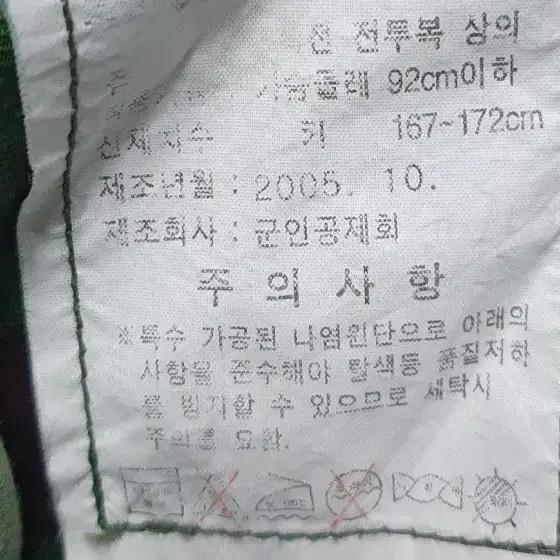 전투복 상의
가슴둘레 92cm이하
신체치수 키 167~172cm
제조년월 : 2005. 10.
제조회사 : 군인공제회
주 의 사 항
※특수 가공된 나염원단으로 아래의
사항을 준수해야 탈색등 품질저하
를 방지할 수 있으므로 세탁시
주의를 요함.